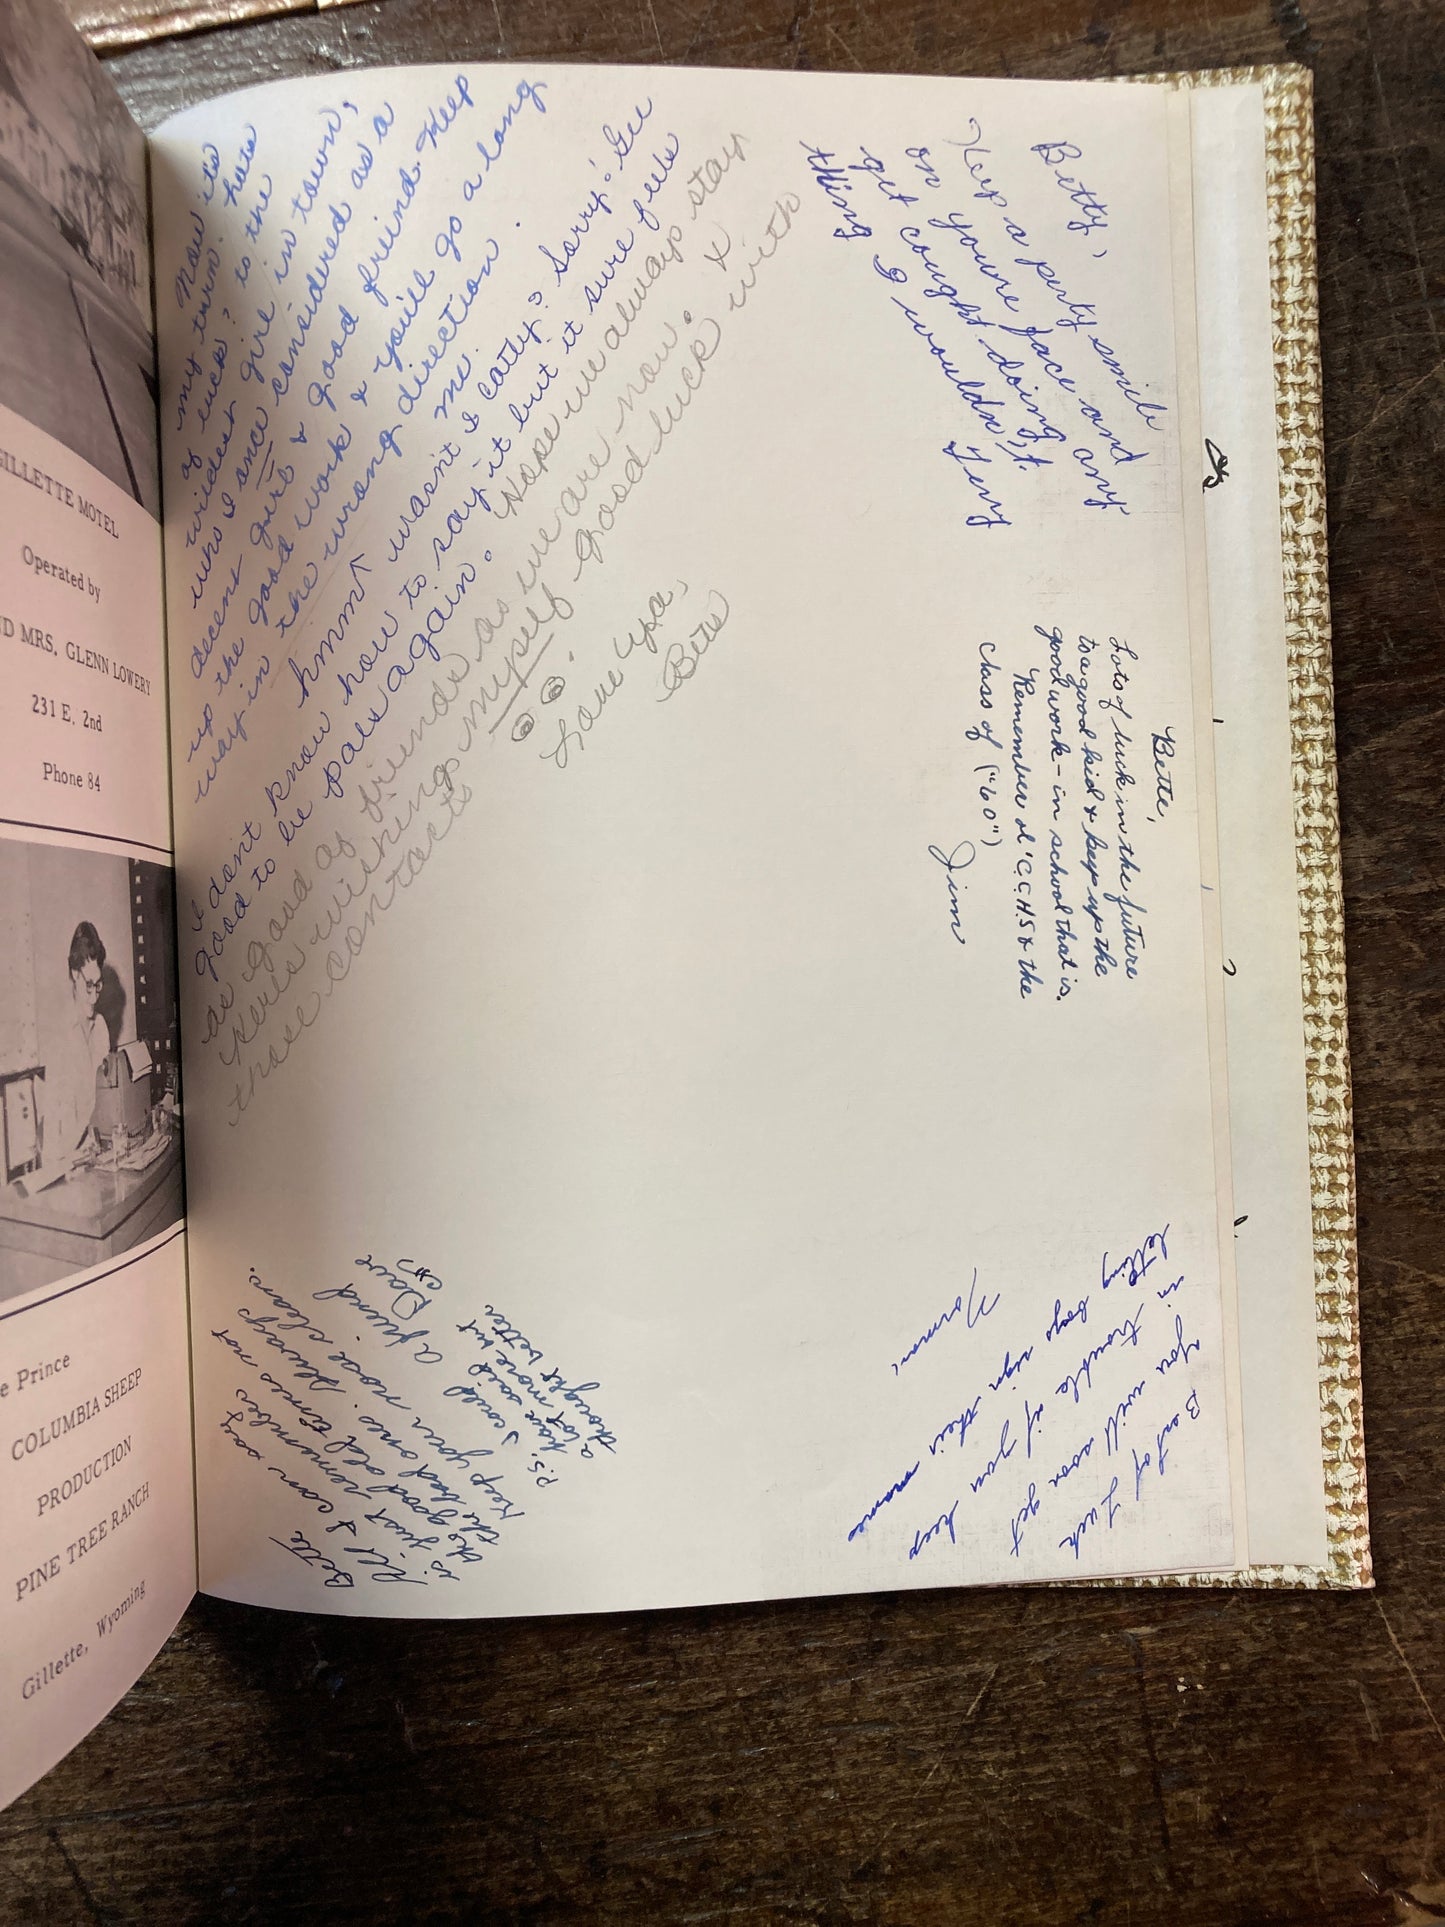 GILLETTE MOTEL
Operated by
ND MRS. GLENN LOWERY
231 E. 2nd
Phone 84
e Prince
COLUMBIA SHEEP
PRODUCTION
PINE TREE RANCH
Gillette, Wyoming
Now it's
my turn. hats
of luck? to the
widest girl in town,
who I once considered as a
decent girl & good friend. Keep
up the good work & you'll go a long
way in the wrong direction.
hmm wasn't I catty? Sorry! Gee
I don't know how to say it but it sure feels
good to be pals again. Hope we always stay
as good of friends as we are now. &
here's wishing myself good luck with
those contacts
Love ya,
Bets
Betty,
Keep a perty smile
on youre face and
get cought doing any
thing I wouldn't.
Jerry
Bette,
Lots of luck in the future
to a good kid & keep up the
good work - in school that is.
Remember ol' C.C.H.S & the
class of ("60")
Jim
Bette
All I can say
is just remember
the good old times not
the bad ones. Always
Keep your nose clean.
A friend
Dave
P.S. I could
have said
a lot more but
thought better.
Bette
Best of Luck
in you will soon get
in trouble if you keep
letting boys sign their name
Norman